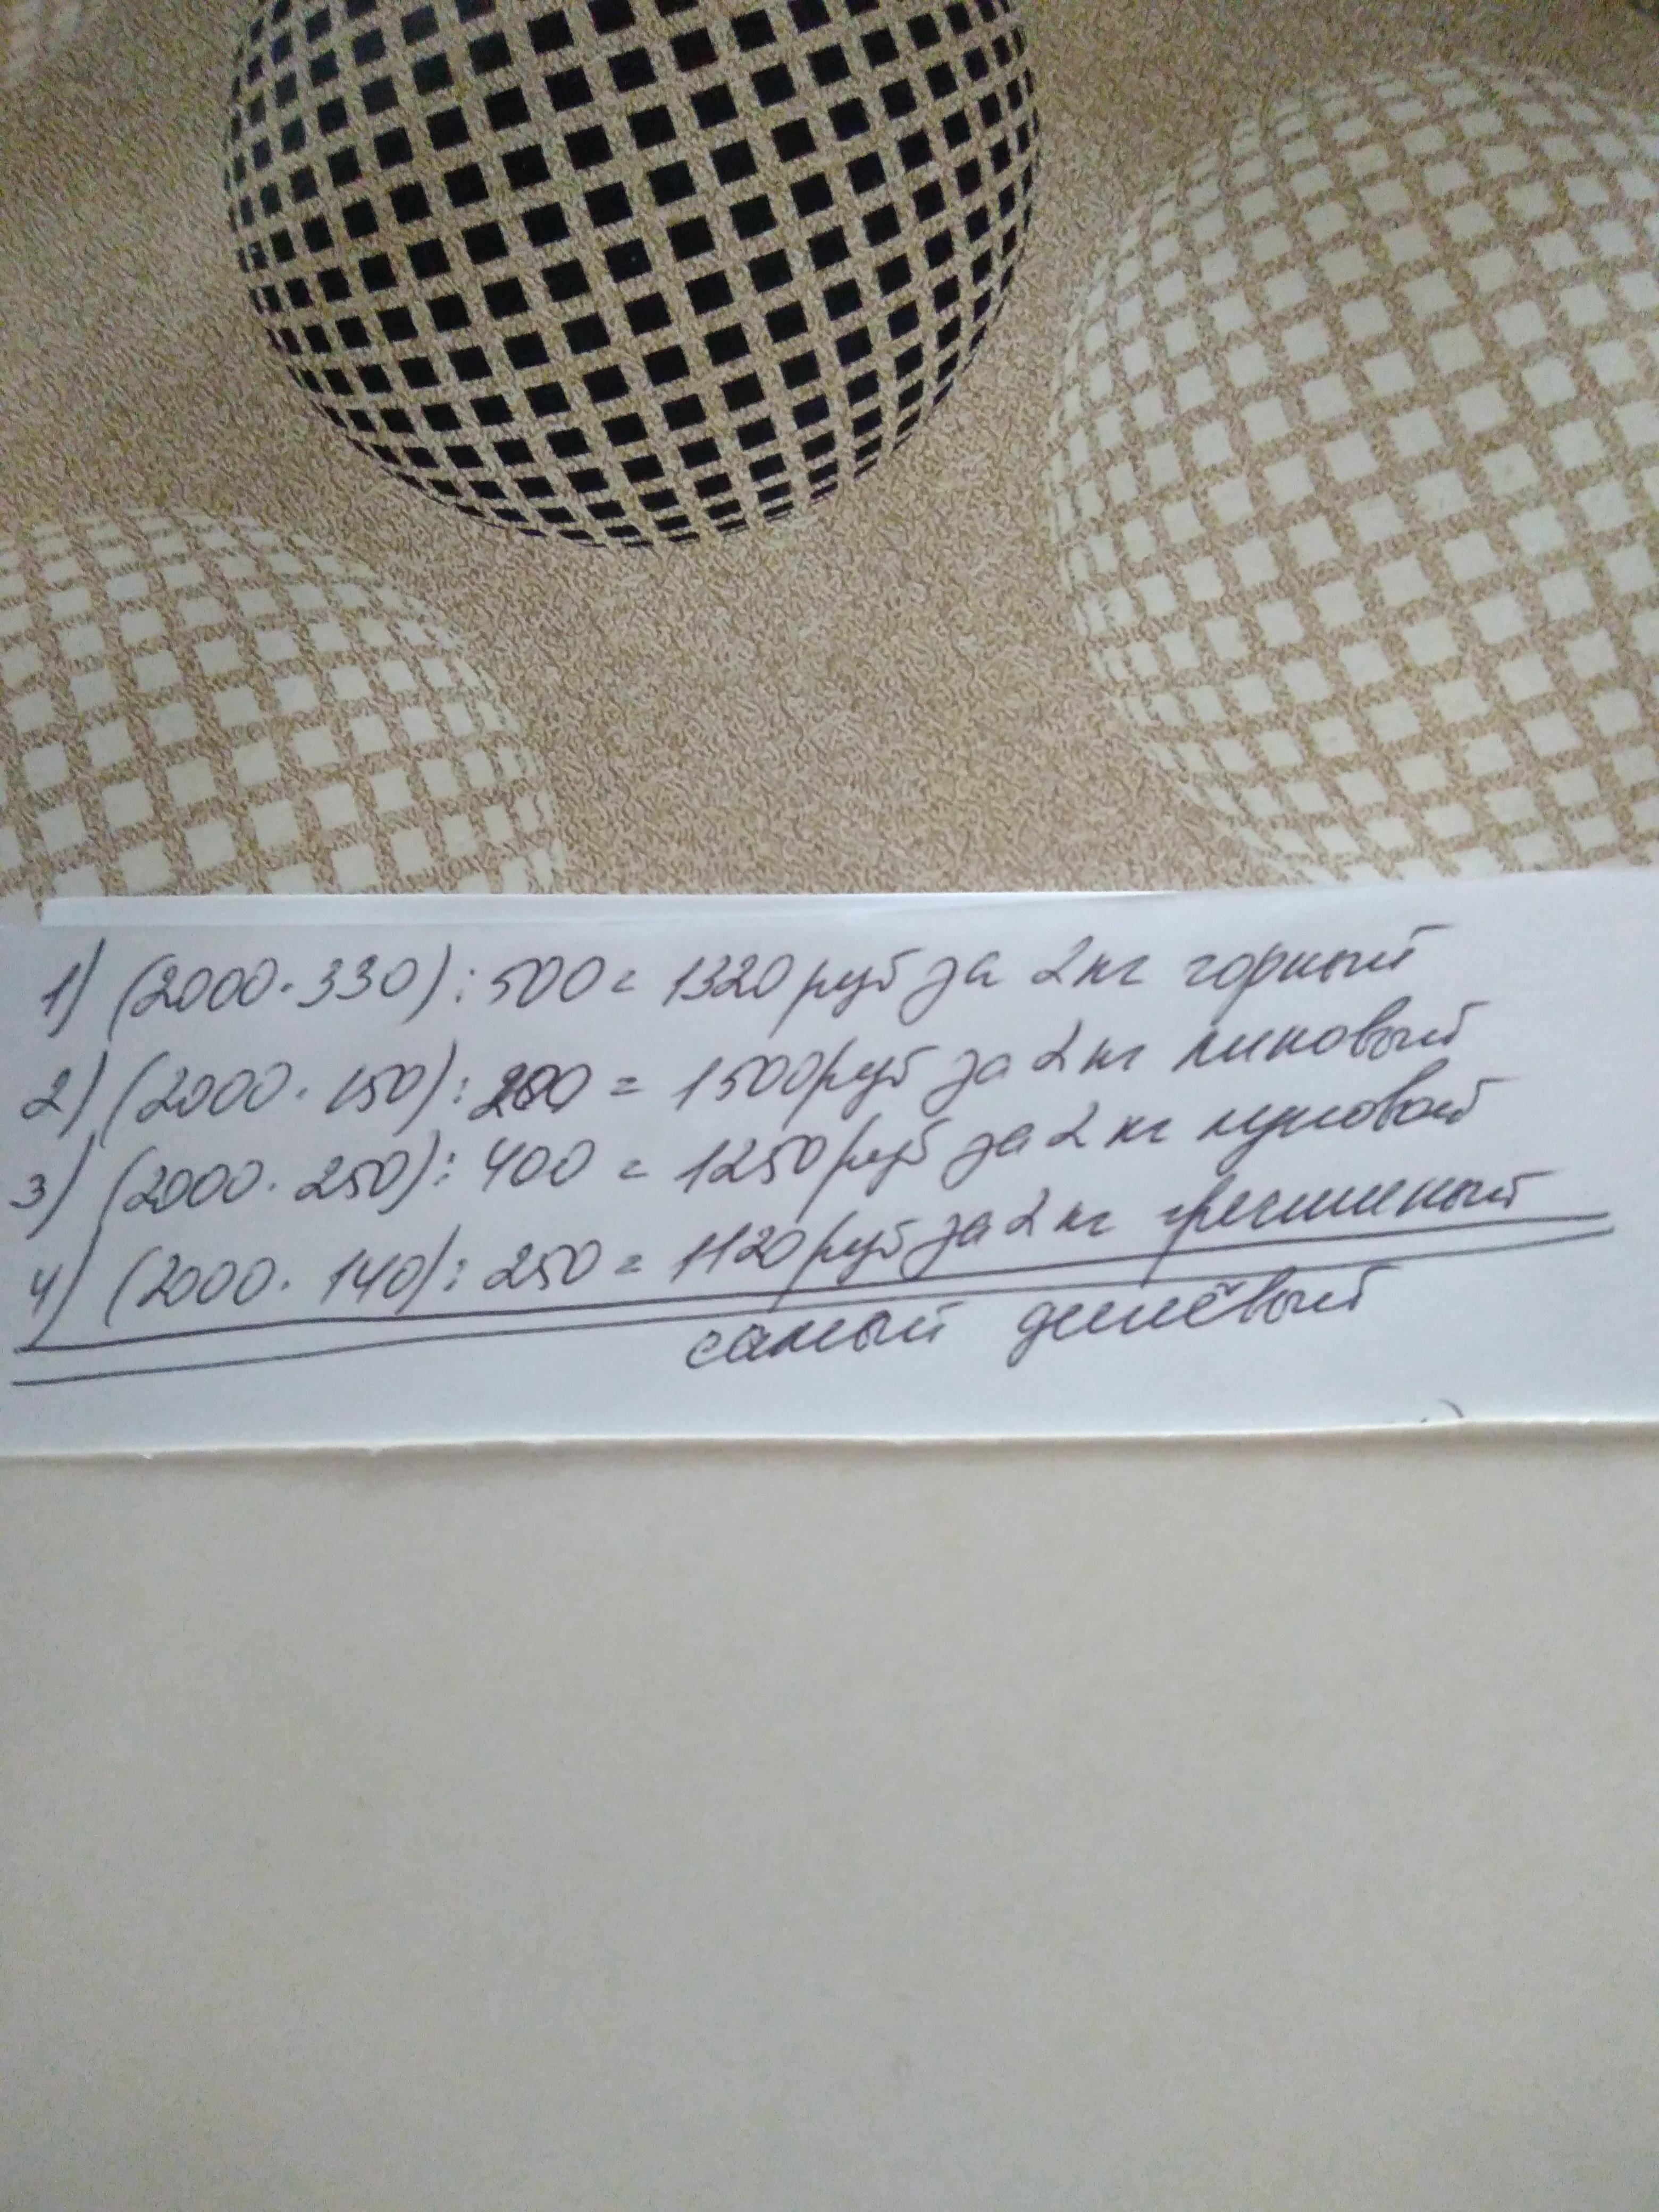 1) (2000·330):500= 1320 руб за 2кг горный
2) (2000·150):200 = 1500руб за 2кг липовый
3) (2000·250):400 = 1250руб за 2кг луговой
4) (2000·140):250= 1120руб за 2кг гречишный
самый дешёвый